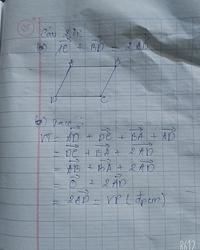 Câu 25:
a) \vec{AC} + \vec{BD} = 2\vec{AD}
A B
D C
a) Ta có:
VT = \vec{AD} + \vec{DC} + \vec{BA} + \vec{AD}
= \vec{DC} + \vec{BA} + 2\vec{AD}
= \vec{AB} + \vec{BA} + 2\vec{AD}
= \vec{0} + 2\vec{AD}
= 2\vec{AD} = VP (đpcm)